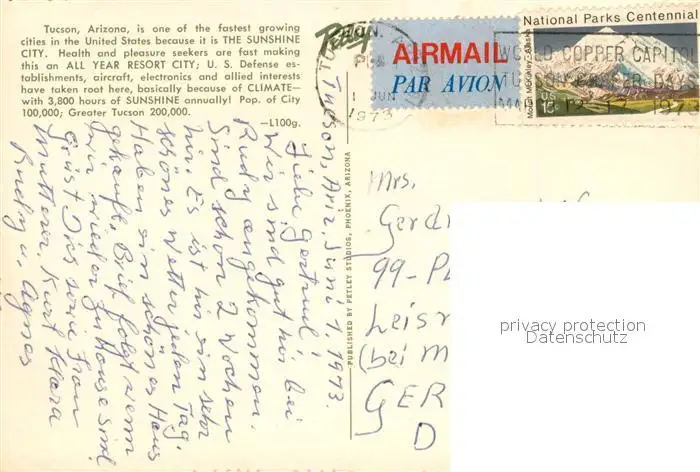 Tucson, Arizona, is one of the fastest growing
cities in the United States because it is THE SUNSHINE
CITY. Health and pleasure seekers are fast making
this an ALL YEAR RESORT CITY; U. S. Defense es-
tablishments, aircraft, electronics and allied interests
have taken root here, basically because of CLIMATE—
with 3,800 hours of SUNSHINE annually! Pop. of City
100,000; Greater Tucson 200,000.
—L100g.
Petley
Tucson, Ariz. Juni 1. 1973.
Liebe Gertrud!
Wir sind gut hir bei
Rudy angekommen.
Sind schon 2 Wochen
hir. Es ist hir ein sehr
schönes Wetter jeden Tag.
Haben ein schönes Haus
gekauft. Brief folgt wenn
wir wieder zu Hause sind.
Grüst Dies seine Frau
Mutterer. Kurt Klara
Rudy u. Agnes
PUBLISHED BY PETLEY STUDIOS, PHOENIX, ARIZONA
AIRMAIL
PAR AVION
JUN
1973
National Parks Centennial
Mount McKinley-Alaska
US
15c
WORLD COPPER CAPITOL
Mrs.
Gerd
99-
Leis
(bei m
GER
D
privacy protection
Datenschutz